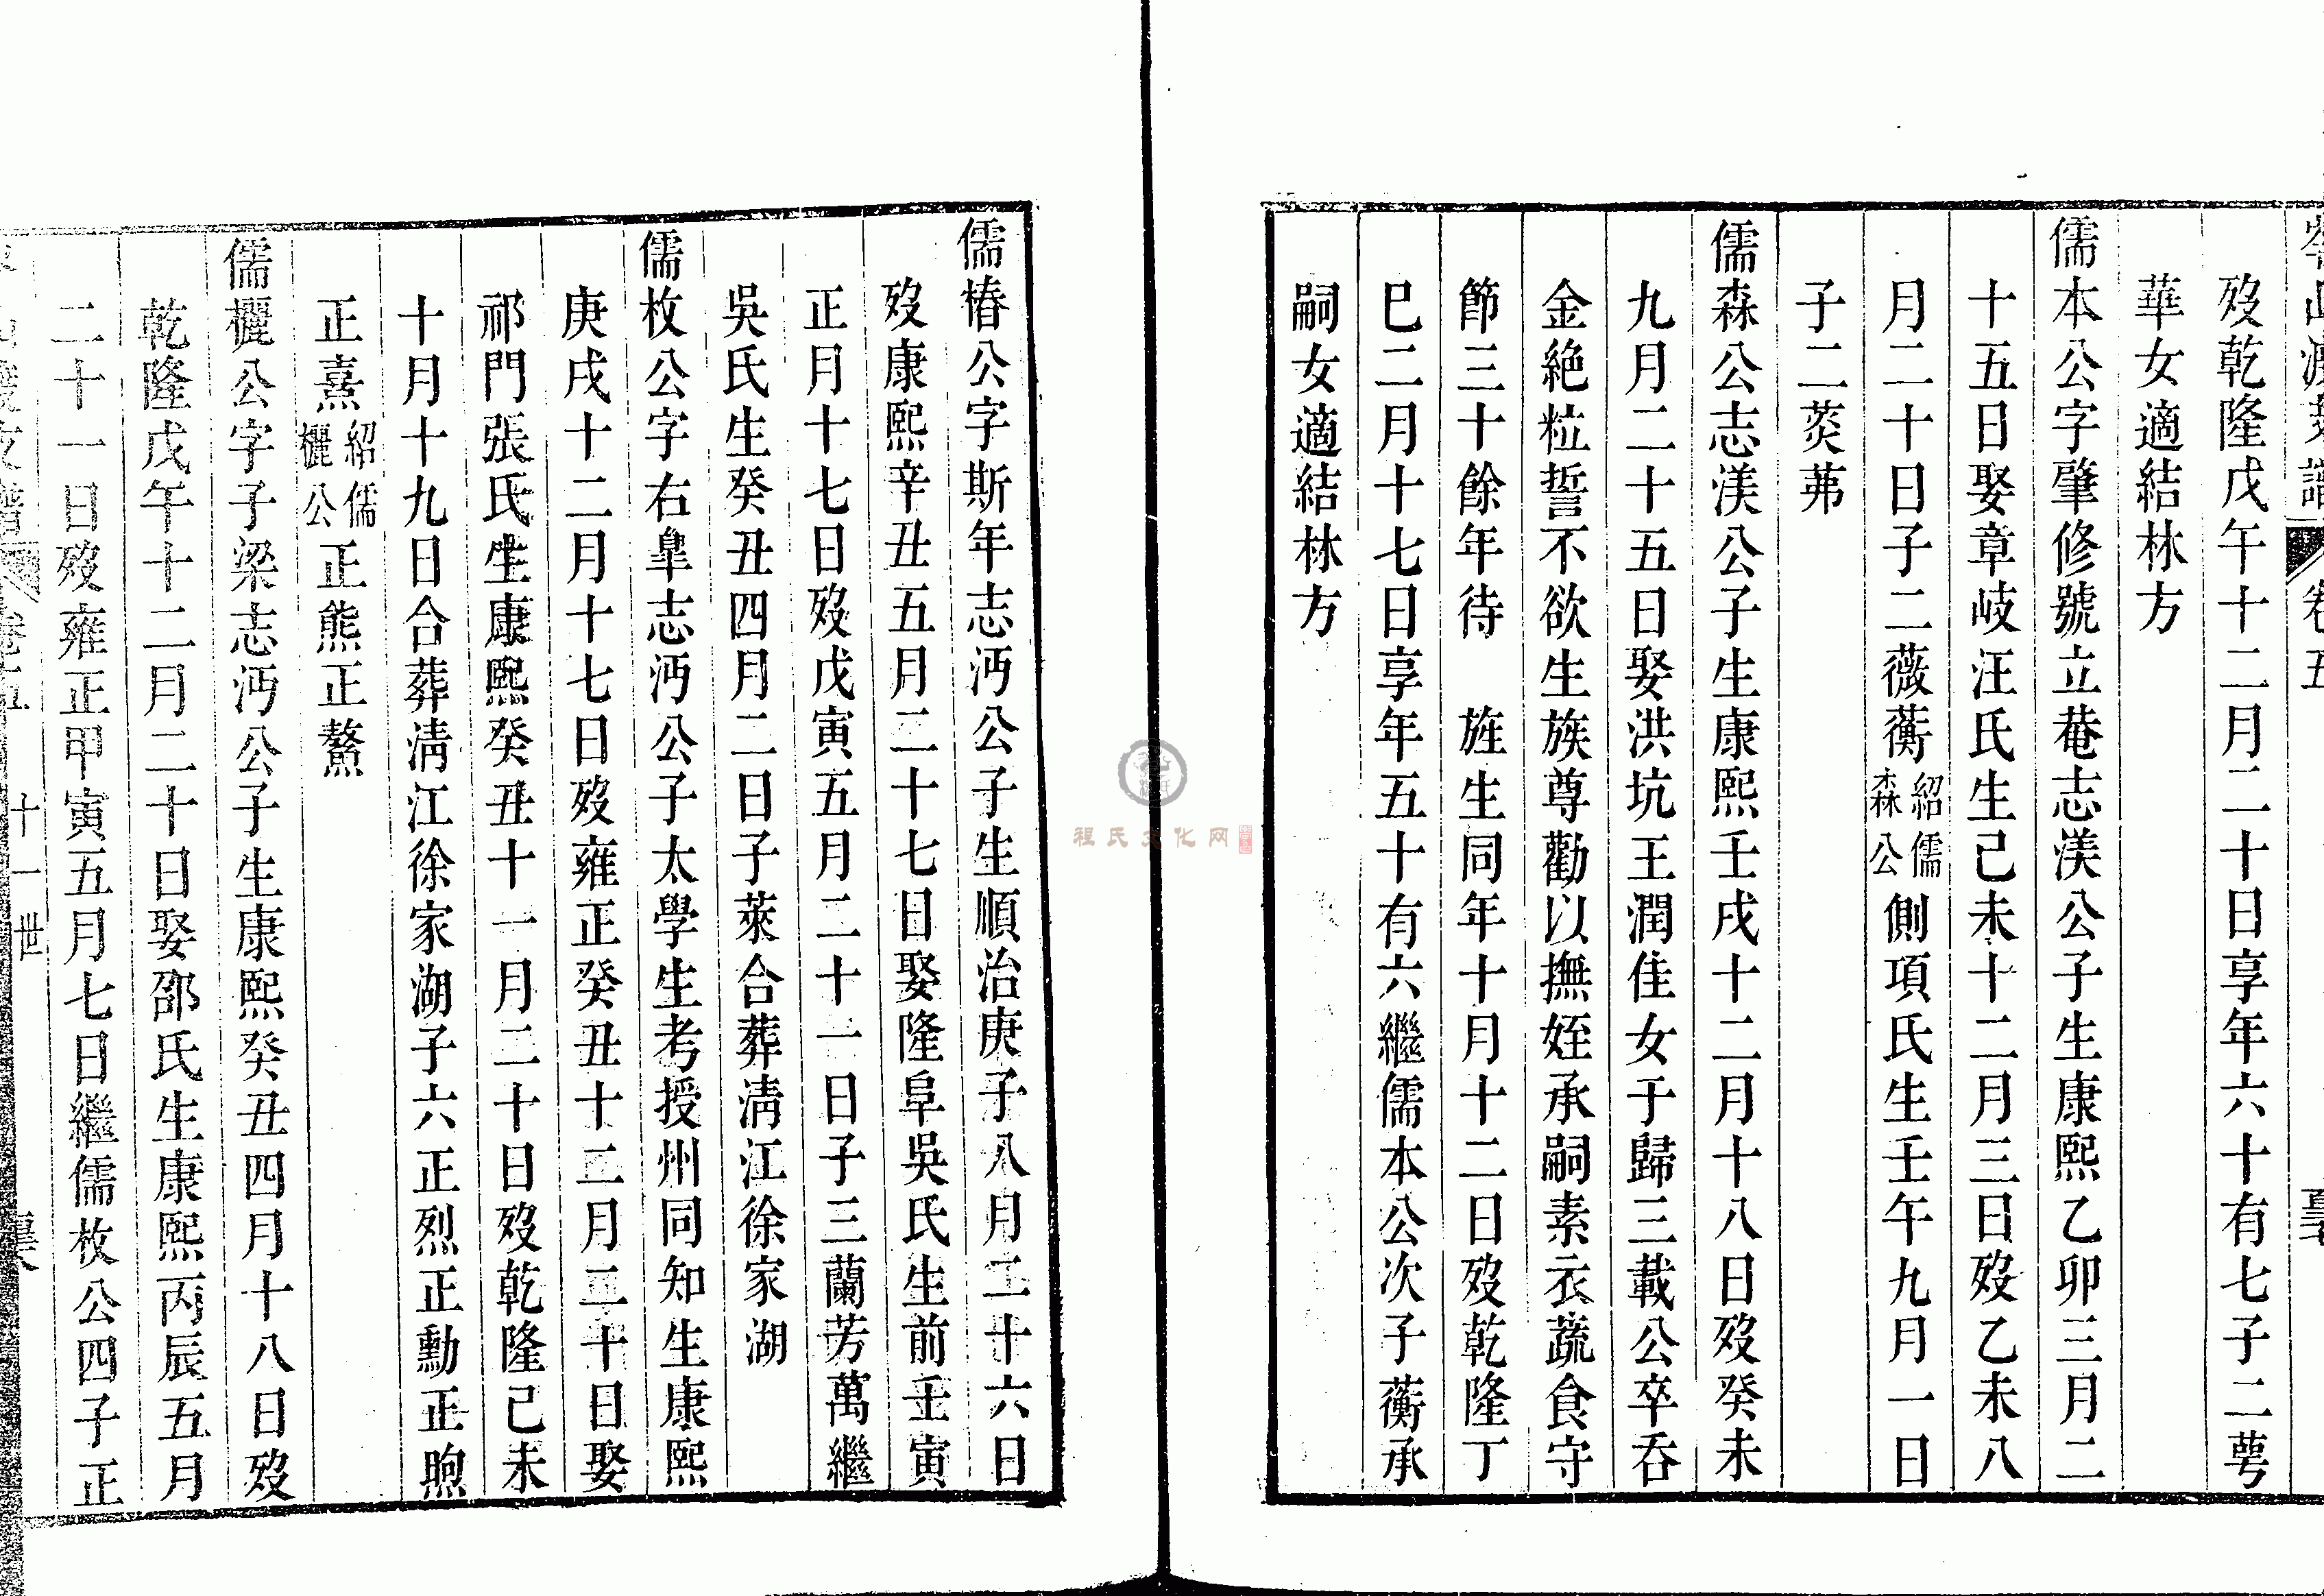 歿乾隆戊午十二月二十日享年六十有七子二蕚
華女適結林方
儒本公字肇修號立菴志渼公子生康熙乙卯三月二
十五日娶章岐汪氏生己未十二月三日歿乙未八
月二十日子二薇蘅紹儒森公側項氏生壬午九月一日
子二葖茀
儒森公志渼公子生康熙壬戌十二月十八日歿癸未
九月二十五日娶洪坑王潤佳女于歸三載公卒吞
金絶粒誓不欲生族尊勸以撫姪承嗣素衣蔬食守
節三十餘年待 旌生同年十月十二日歿乾隆丁
巳二月十七日享年五十有六繼儒本公次子蘅承
嗣女適結林方
儒椿公字斯年志沔公子生順治庚子八月二十六日
歿康熙辛丑五月二十七日娶隆阜吳氏生前壬寅
正月十七日歿戊寅五月二十一日子三蘭芳萬繼
吳氏生癸丑四月二日子萊合葬淸江徐家湖
儒枚公字右臯志沔公子太學生考授州同知生康熙
庚戌十二月十七日歿雍正癸丑十二月二十日娶
祁門張氏生康熙癸丑十一月二十日歿乾隆己未
十月十九日合葬淸江徐家湖子六正烈正勳正煦
正熹紹儒欐公正熊正鰲
儒欐公字子梁志沔公子生康熙癸丑四月十八日歿
乾隆戊午十二月二十日娶邵氏生康熙丙辰五月
二十一日歿雍正甲寅五月七日繼儒枚公四子正
十一世
程氏文化网